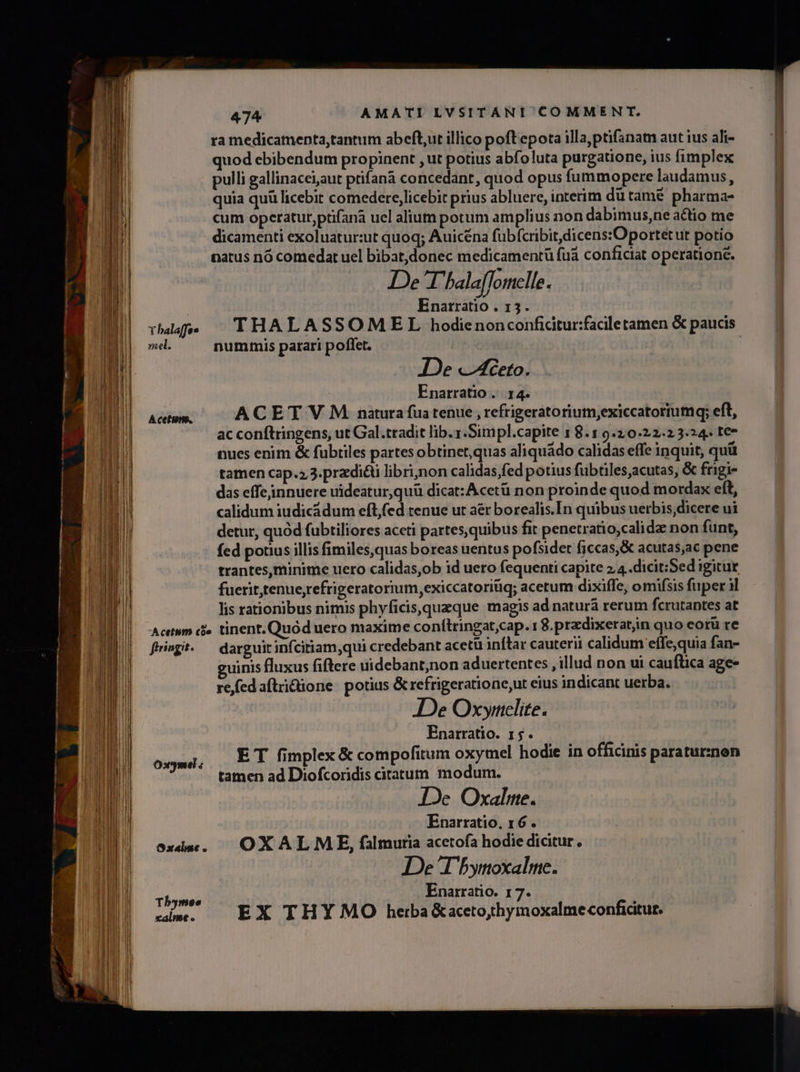 474 AMATI LVSITANI COMMENT.
ra medicamenta,tantum abest,ut illico post epota illa,ptisanam aut ius ali-
quod ebibendum propinent , ut potius absoluta purgatione, ius simplex
pulli gallinacei,aut ptisanā concedant, quod opus summopere laudamus,
quia quū licebit comedere,licebit prius abluere, interim dū tamē pharma-
cum operatur,ptisanā uel alium potum amplius non dabimus,ne actio me
dicamenti exoluatur:ut quoq; Auicēna subscribit,dicens:Oportet ut potio
natus nō comedat uel bibat,donec medicamentū suā conficiat operationē.
De Thalassomelle.
Enarratio . 13.
Thalasso-
mel.
THALASSOMEL hodie non conficitur:facile tamen & paucis
nummis parari posset.
De Aceto.
Enarratio . 14.
Acetum.
ACETVM natura sua tenue , refrigeratorium,exiccatoriumq; est,
ac constringens, ut Gal.tradit lib.1.Simpl.capite 18.19.20.22.23.24. te-
nues enim & subtiles partes obtinet,quas aliquādo calidas esse inquit, quū
tamen cap.23.prædicti libri,non calidas,sed potius subtiles,acutas, & frigi-
das esse,innuere uideatur,quū dicat:Acetū non proinde quod mordax est,
calidum iudicādum est,sed tenue ut aër borealis.In quibus uerbis,dicere ui
detur, quòd subtiliores aceti partes,quibus fit penetratio,calidæ non sunt,
sed potius illis similes,quas boreas uentus possidet siccas,& acutas,ac pene
trantes,minime uero calidas,ob id uero sequenti capite 24.dicit:Sed igitur
fuerit,tenue,refrigeratorium,exiccatoriūq; acetum dixisse, omissis super il
lis rationibus nimis physicis,quæque magis ad naturā rerum scrutantes at
Acetum cō-
stringit.
tinent.Quòd uero maxime constringat,cap.18.prædixerat,in quo eorū re
darguit inscitiam,qui credebant acetū instar cauterii calidum esse,quia san-
guinis fluxus sistere uidebant,non aduertentes , illud non ui caustica age-
re,sed astrictione potius & refrigeratione,ut eius indicant uerba.
De Oxymelite.
Enarratio. 15.
Oxymel.
ET simplex & compositum oxymel hodie in officinis paratur:non
tamen ad Dioscoridis citatum modum.
De Oxalme.
Enarratio. 16.
Oxalme.
OXALME, salmuria acetosa hodie dicitur .
De Thymoxalme.
Enarratio. 17.
Thymo-
xalme.
EX THYMO herba & aceto,thymoxalme conficitur.